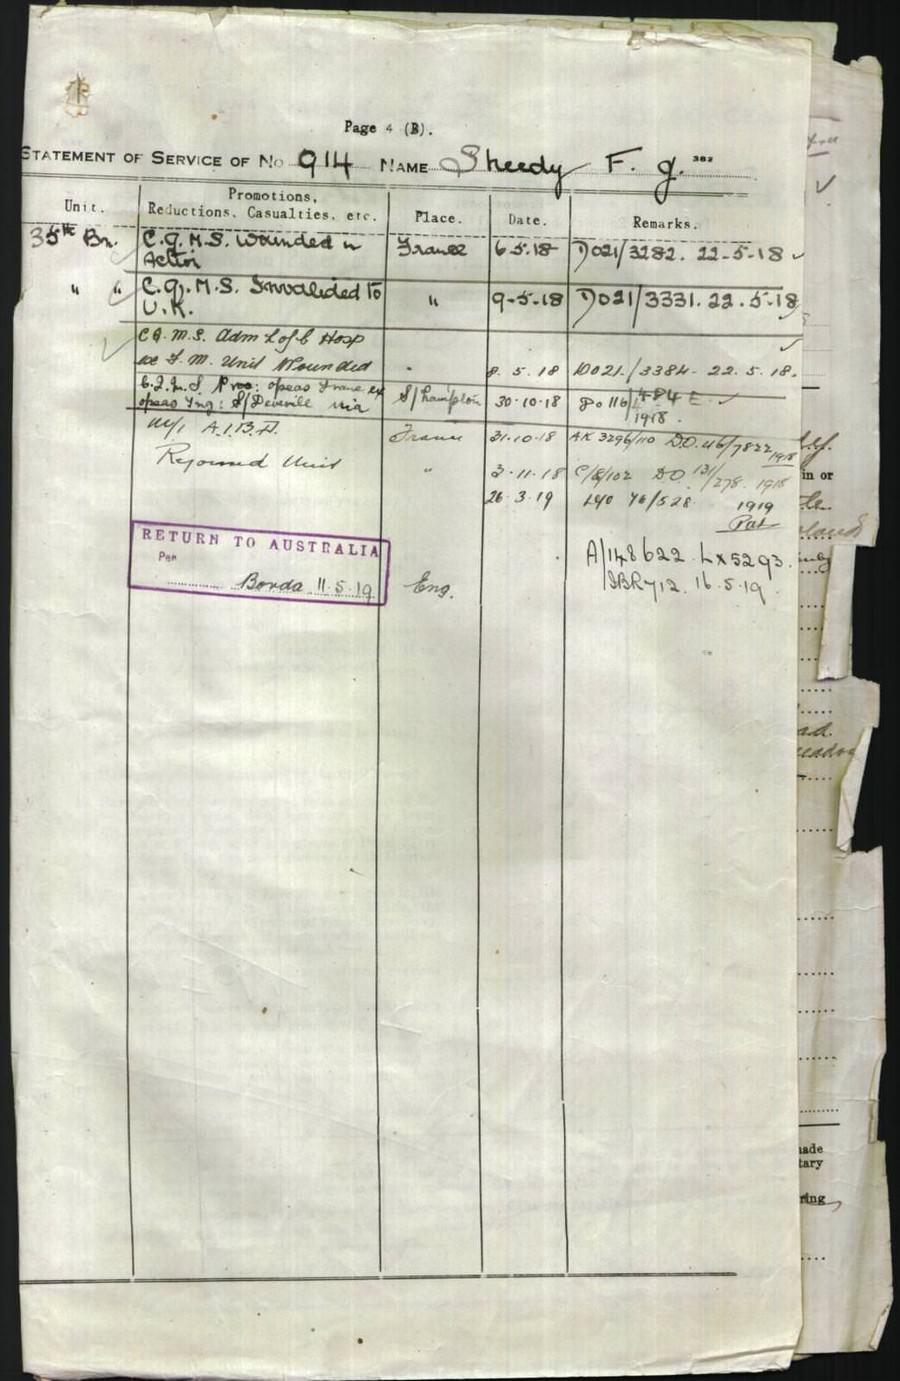 Page 4 (B).
STATEMENT OF SERVICE OF No 914 NAME Sheedy F. J. 382
Unit. Promotions, Reductions, Casualties, etc. Place. Date. Remarks.
35th Bn. C.Q.M.S. Wounded in France 6-5-18 DO21/3282. 22-5-18
Action
" " C.Q.M.S. Invalided to " 9-5-18 DO21/3331. 22.5.18
U.K.
CQ.M.S. Adm Hosp
F.M. Unit Wounded 8.5.18 DO21/3384. 22.5.18.
Proc: o/seas France ex S/hampton 30-10-18 Do 116/
o/seas Trng: S/Deverill via 1918.
M/I A.I.B.D. France 31.10.18 AK 3296/110 DO.46/7822 1918
Rejoined Unit " 3.11.18 C/8/102 DO 131/278. 1918
26.3.19 46/528 1919
RETURN TO AUSTRALIA
Per
Borda 11.5.19 Eng.
A/148622. LX5293.
16.5.19
in or
made
tary
ring